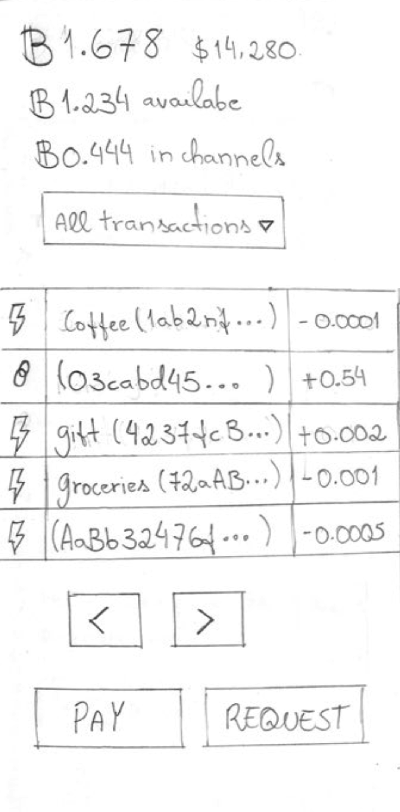 ₿1.678 $14,280
₿1.234 availabe
₿0.444 in channels
All transactions ▿
Coffee (1ab2nf...) - 0.0001
(03cabd45... ) +0.54
gift (4237fcB...) +0.002
groceries (72aAB...) -0.001
(AaBb32476f...) -0.0005
< >
PAY REQUEST